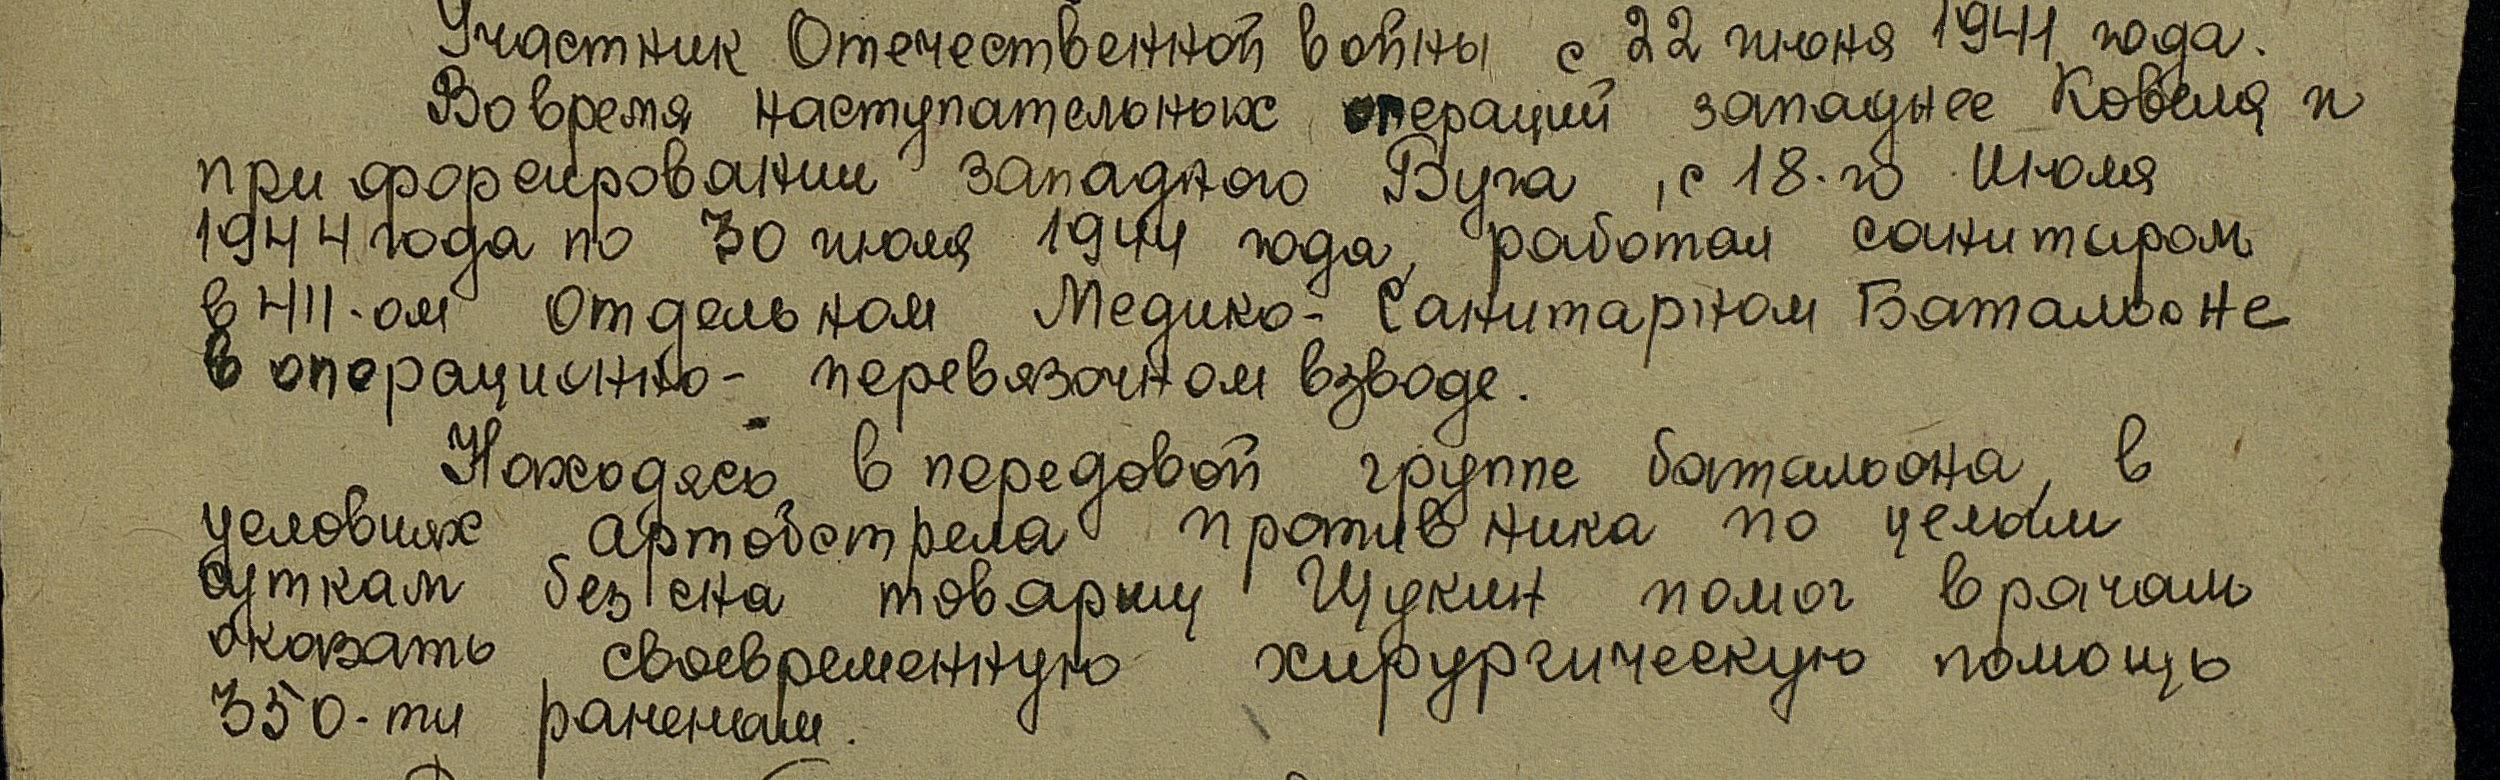 Участник Отечественной войны с 22 июня 1941 года.
Во время наступательных операций западнее Ковеля и
при форсировании западного Буга, с 18-го Июля
1944 года по 30 июля 1944 года, работая санитаром
в 411-ом Отдельном Медико-Санитарном Батальоне
в операционно-перевязочном взводе.
Находясь в передовой группе батальона, в
условиях артобстрела противника по целым
суткам без сна товарищ Щукин помог врачам
оказать своевременную хирургическую помощь
350-ти раненым.